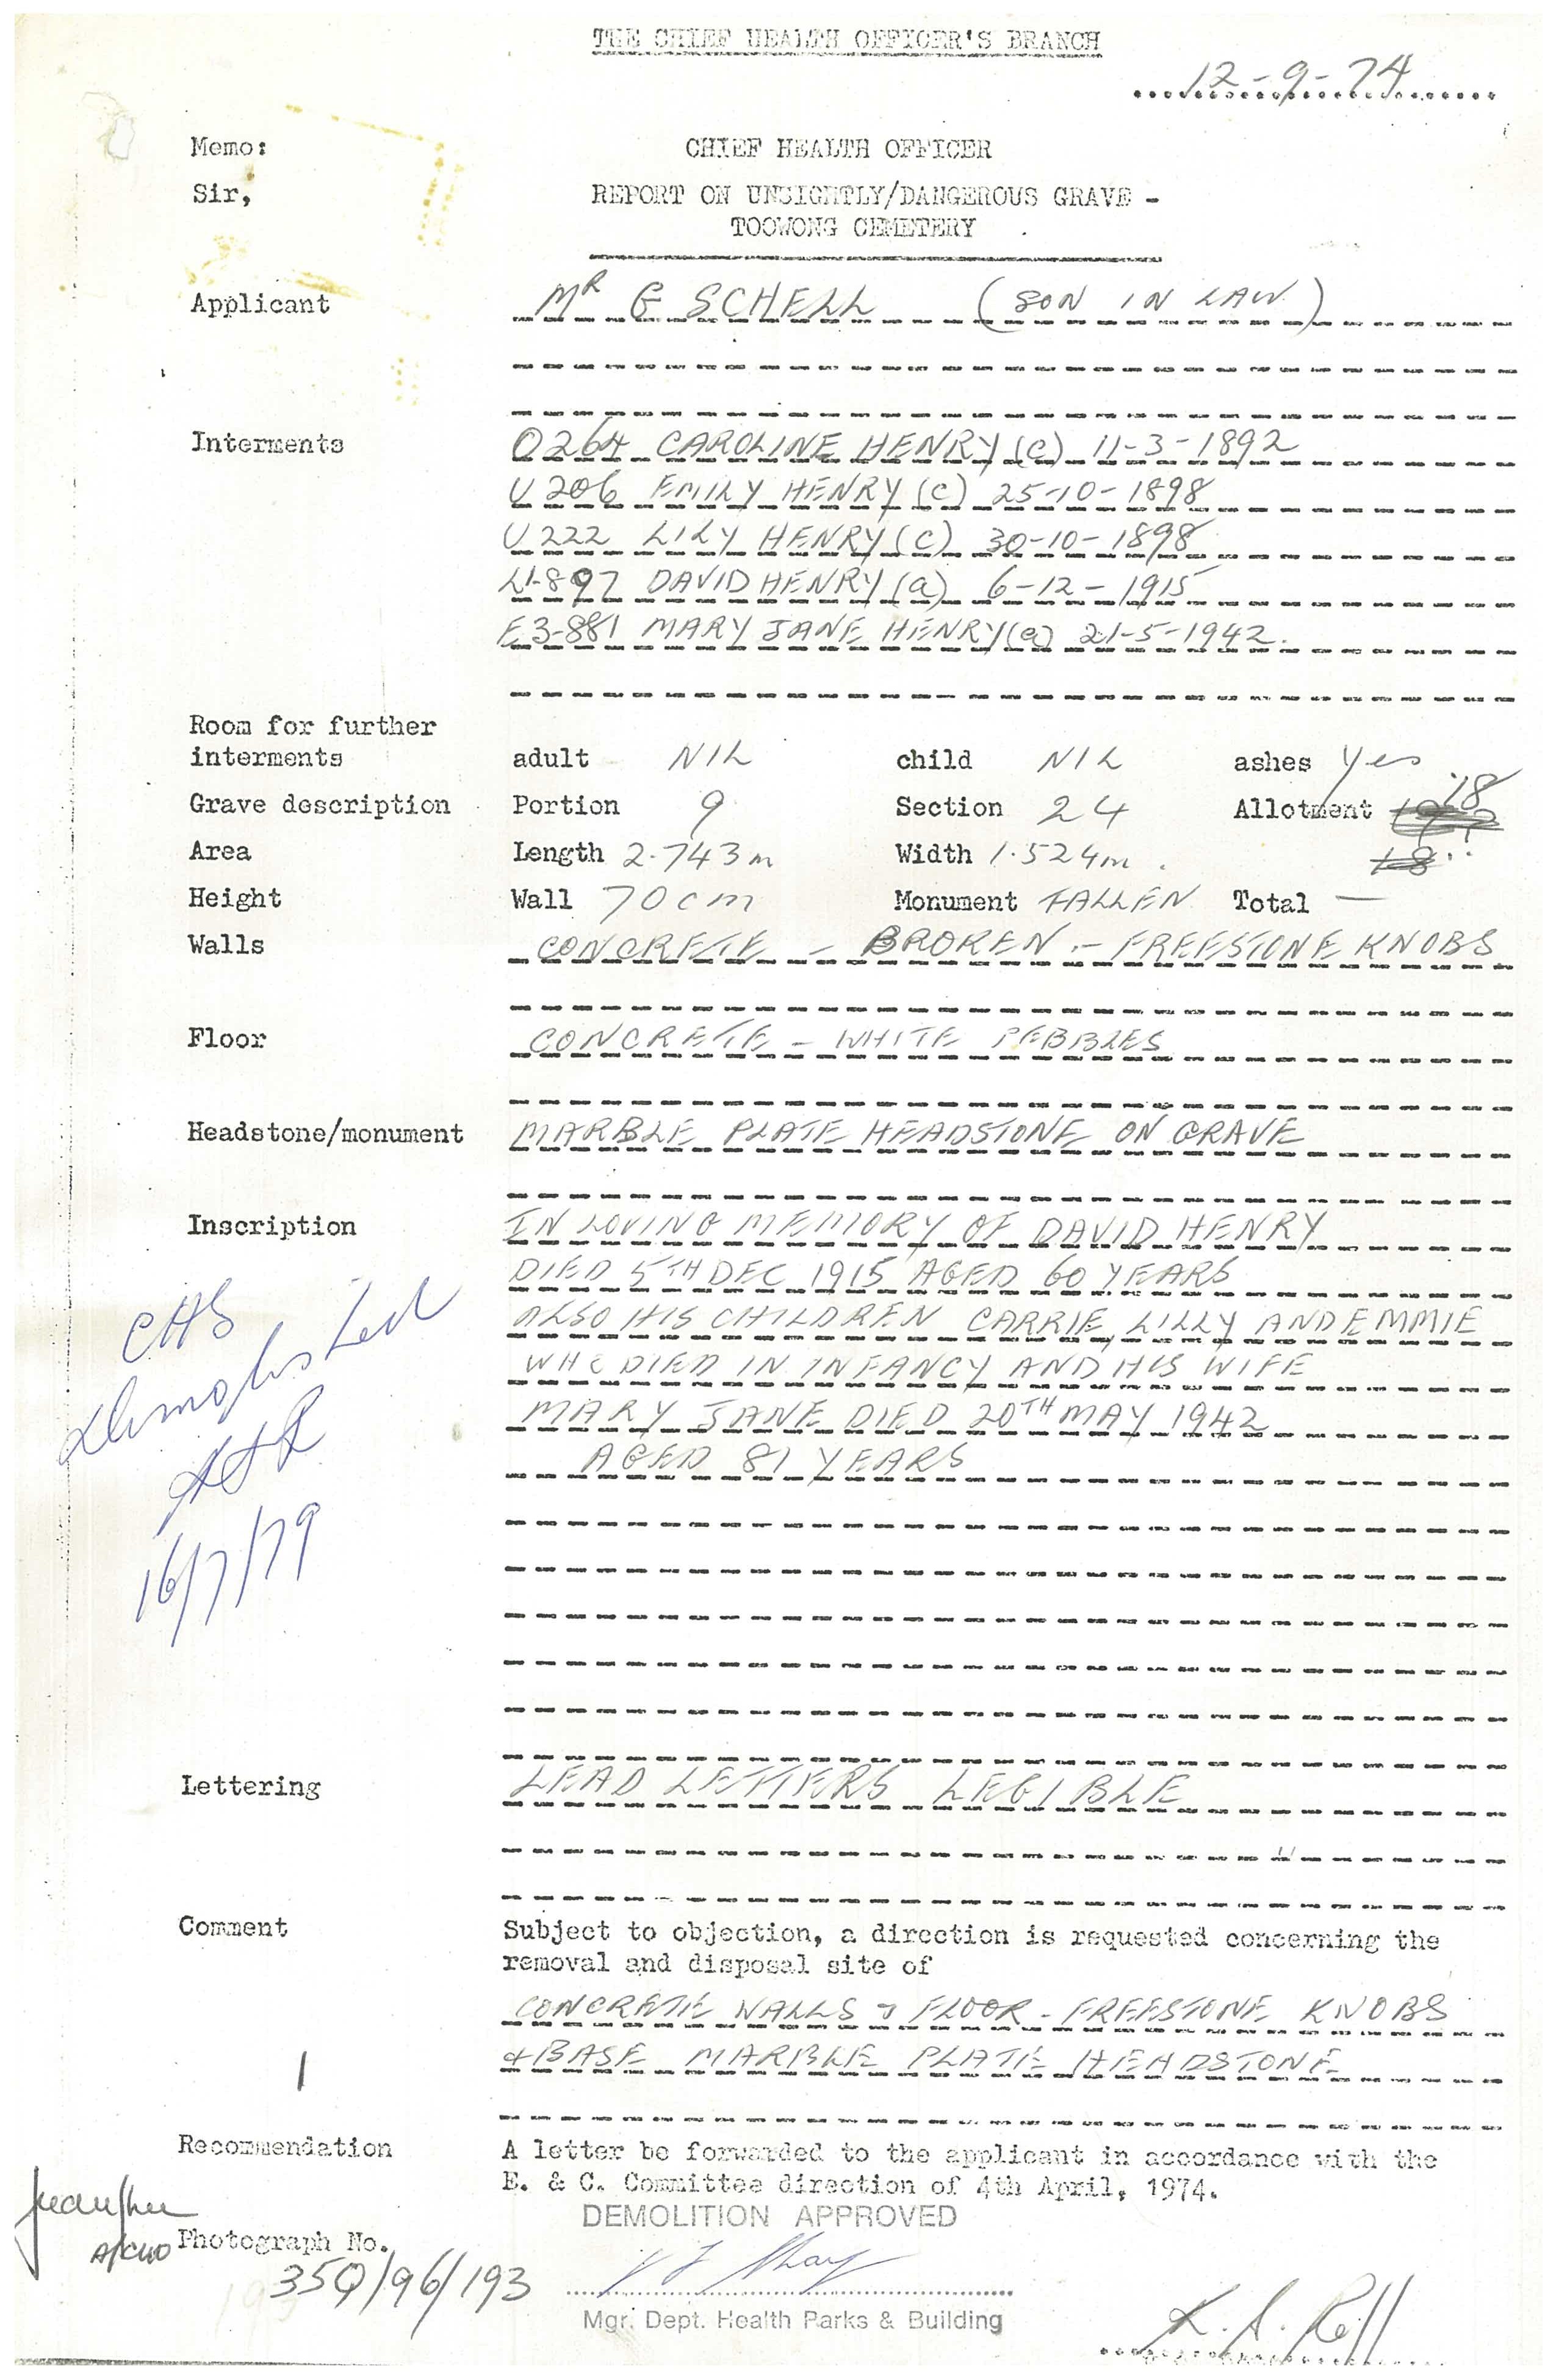 THE CHIEF HEALTH OFFICER'S BRANCH
12-9-74
Memo: CHIEF HEALTH OFFICER
Sir, REPORT ON UNSIGHTLY/DANGEROUS GRAVE -
TOOWONG CEMETERY
Applicant MR G SCHELL (SON IN LAW)
Interments O264 CAROLINE HENRY (C) 11-3-1892
U206 EMILY HENRY (C) 25-10-1898
U222 LILY HENRY (C) 30-10-1898
L1-897 DAVID HENRY (a) 6-12-1915
E3-881 MARY JANE HENRY (a) 21-5-1942.
Room for further
interments adult NIL child NIL ashes Yes
18
Grave description Portion 9 Section 24 Allotment
Area Length 2.743m Width 1.524m. 18
Height Wall 70cm Monument FALLEN Total —
Walls CONCRETE - BROKEN - FREESTONE KNOBS
Floor CONCRETE - WHITE PEBBLES
Headstone/monument MARBLE PLATE HEADSTONE ON GRAVE
Inscription IN LOVING MEMORY OF DAVID HENRY
DIED 5TH DEC 1915 AGED 60 YEARS
ALSO HIS CHILDREN CARRIE, LILLY AND EMMIE
WHO DIED IN INFANCY AND HIS WIFE
MARY JANE DIED 20TH MAY 1942
AGED 81 YEARS
CHS
16/7/79
Lettering LEAD LETTERS LEGIBLE
Comment Subject to objection, a direction is requested concerning the
removal and disposal site of
CONCRETE WALLS & FLOOR - FREESTONE KNOBS
& BASE MARBLE PLATE HEADSTONE
Recommendation A letter be forwarded to the applicant in accordance with the
E. & C. Committee direction of 4th April, 1974.
DEMOLITION APPROVED
A/CHO
Photograph No.
35Q/96/193
Mgr. Dept. Health Parks & Building